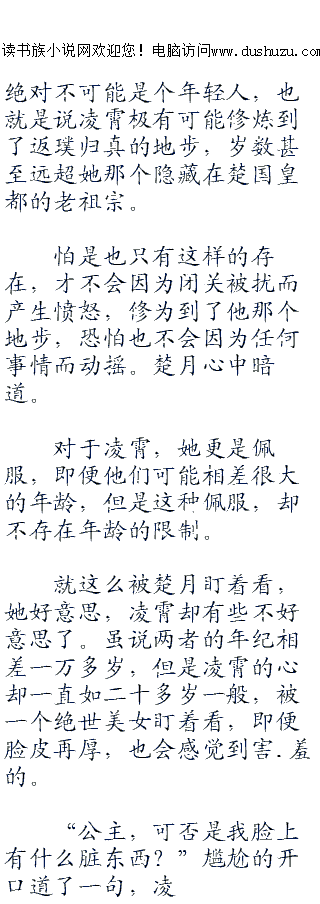 读书族小说网欢迎您！电脑访问www.dushuzu.com
绝对不可能是个年轻人，也
就是说凌霄极有可能修炼到
了返璞归真的地步，岁数甚
至远超她那个隐藏在楚国皇
都的老祖宗。
怕是也只有这样的存
在，才不会因为闭关被扰而
产生愤怒，修为到了他那个
地步，恐怕也不会因为任何
事情而动摇。楚月心中暗
道。
对于凌霄，她更是佩
服，即便他们可能相差很大
的年龄，但是这种佩服，却
不存在年龄的限制。
就这么被楚月盯着看，
她好意思，凌霄却有些不好
意思了。虽说两者的年纪相
差一万多岁，但是凌霄的心
却一直如二十多岁一般，被
一个绝世美女盯着看，即便
脸皮再厚，也会感觉到害.羞
的。
“公主，可否是我脸上
有什么脏东西？”尴尬的开
口道了一句，凌